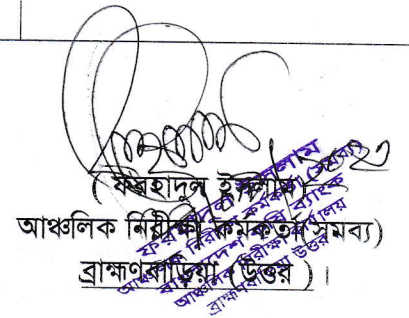 ( ফরহাদুল ইসলাম )
আঞ্চলিক নিরীক্ষা কর্মকর্তা (সমব্য)
ব্রাহ্মণবাড়িয়া (উত্তর) ।
ফরহাদুল ইসলাম
আঞ্চলিক নিরীক্ষা কর্মকর্তা (সমব্য)
বাংলাদেশ কৃষি ব্যাংক
আঞ্চলিক নিরীক্ষা কার্যালয়
ব্রাহ্মণবাড়িয়া উত্তর